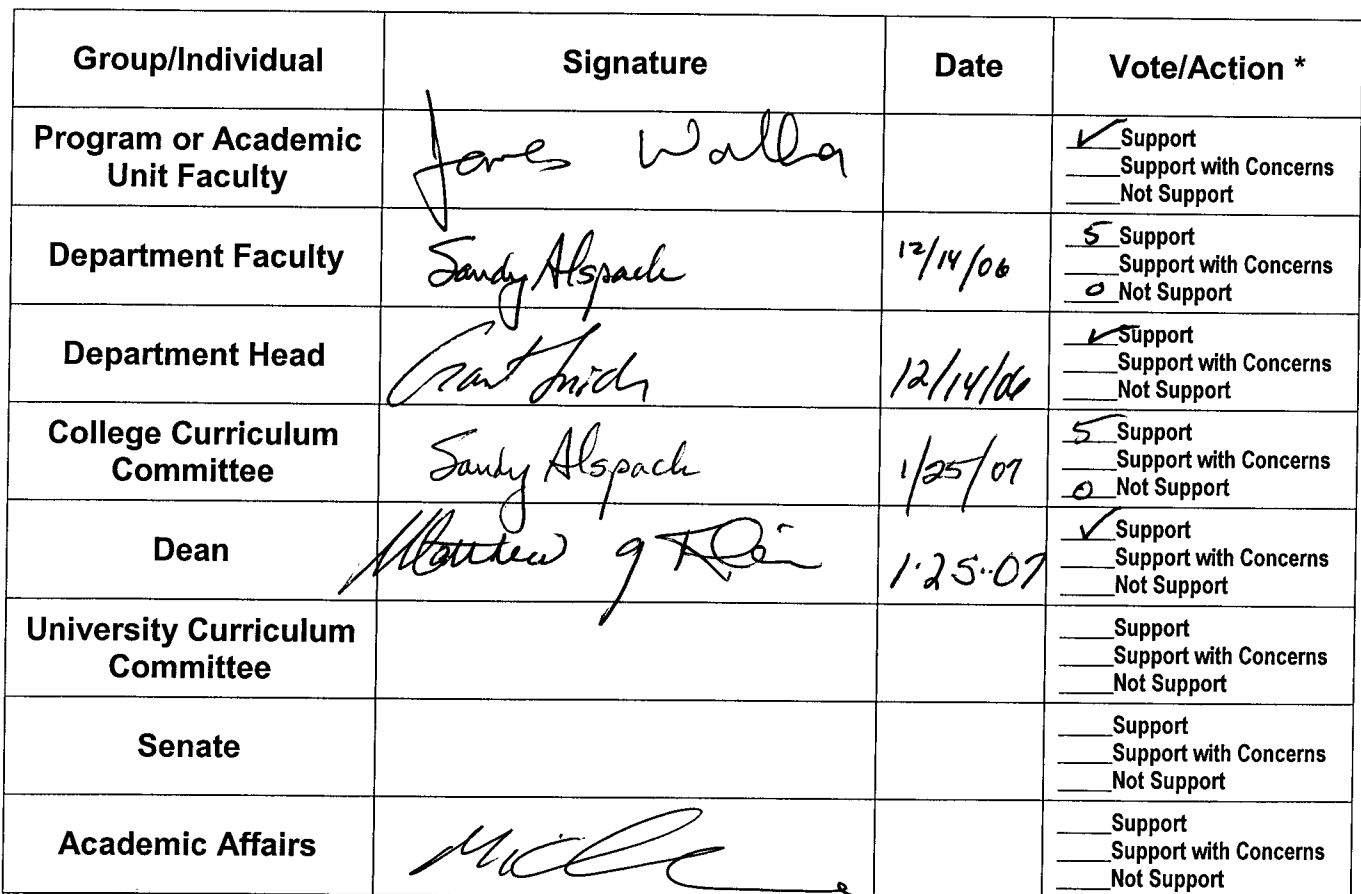 Group/Individual Signature Date Vote/Action *
Program or Academic
Unit Faculty
James
✓ Support
____Support with Concerns
____Not Support
Department Faculty
Sandy Alspach
12/14/06
5 Support
____Support with Concerns
0 Not Support
Department Head
12/14/06
✓ Support
____Support with Concerns
____Not Support
College Curriculum
Committee
Sandy Alspach
1/25/07
5 Support
____Support with Concerns
0 Not Support
Dean
Matthew
1·25·07
✓ Support
____Support with Concerns
____Not Support
University Curriculum
Committee
____Support
____Support with Concerns
____Not Support
Senate
____Support
____Support with Concerns
____Not Support
Academic Affairs
____Support
____Support with Concerns
____Not Support